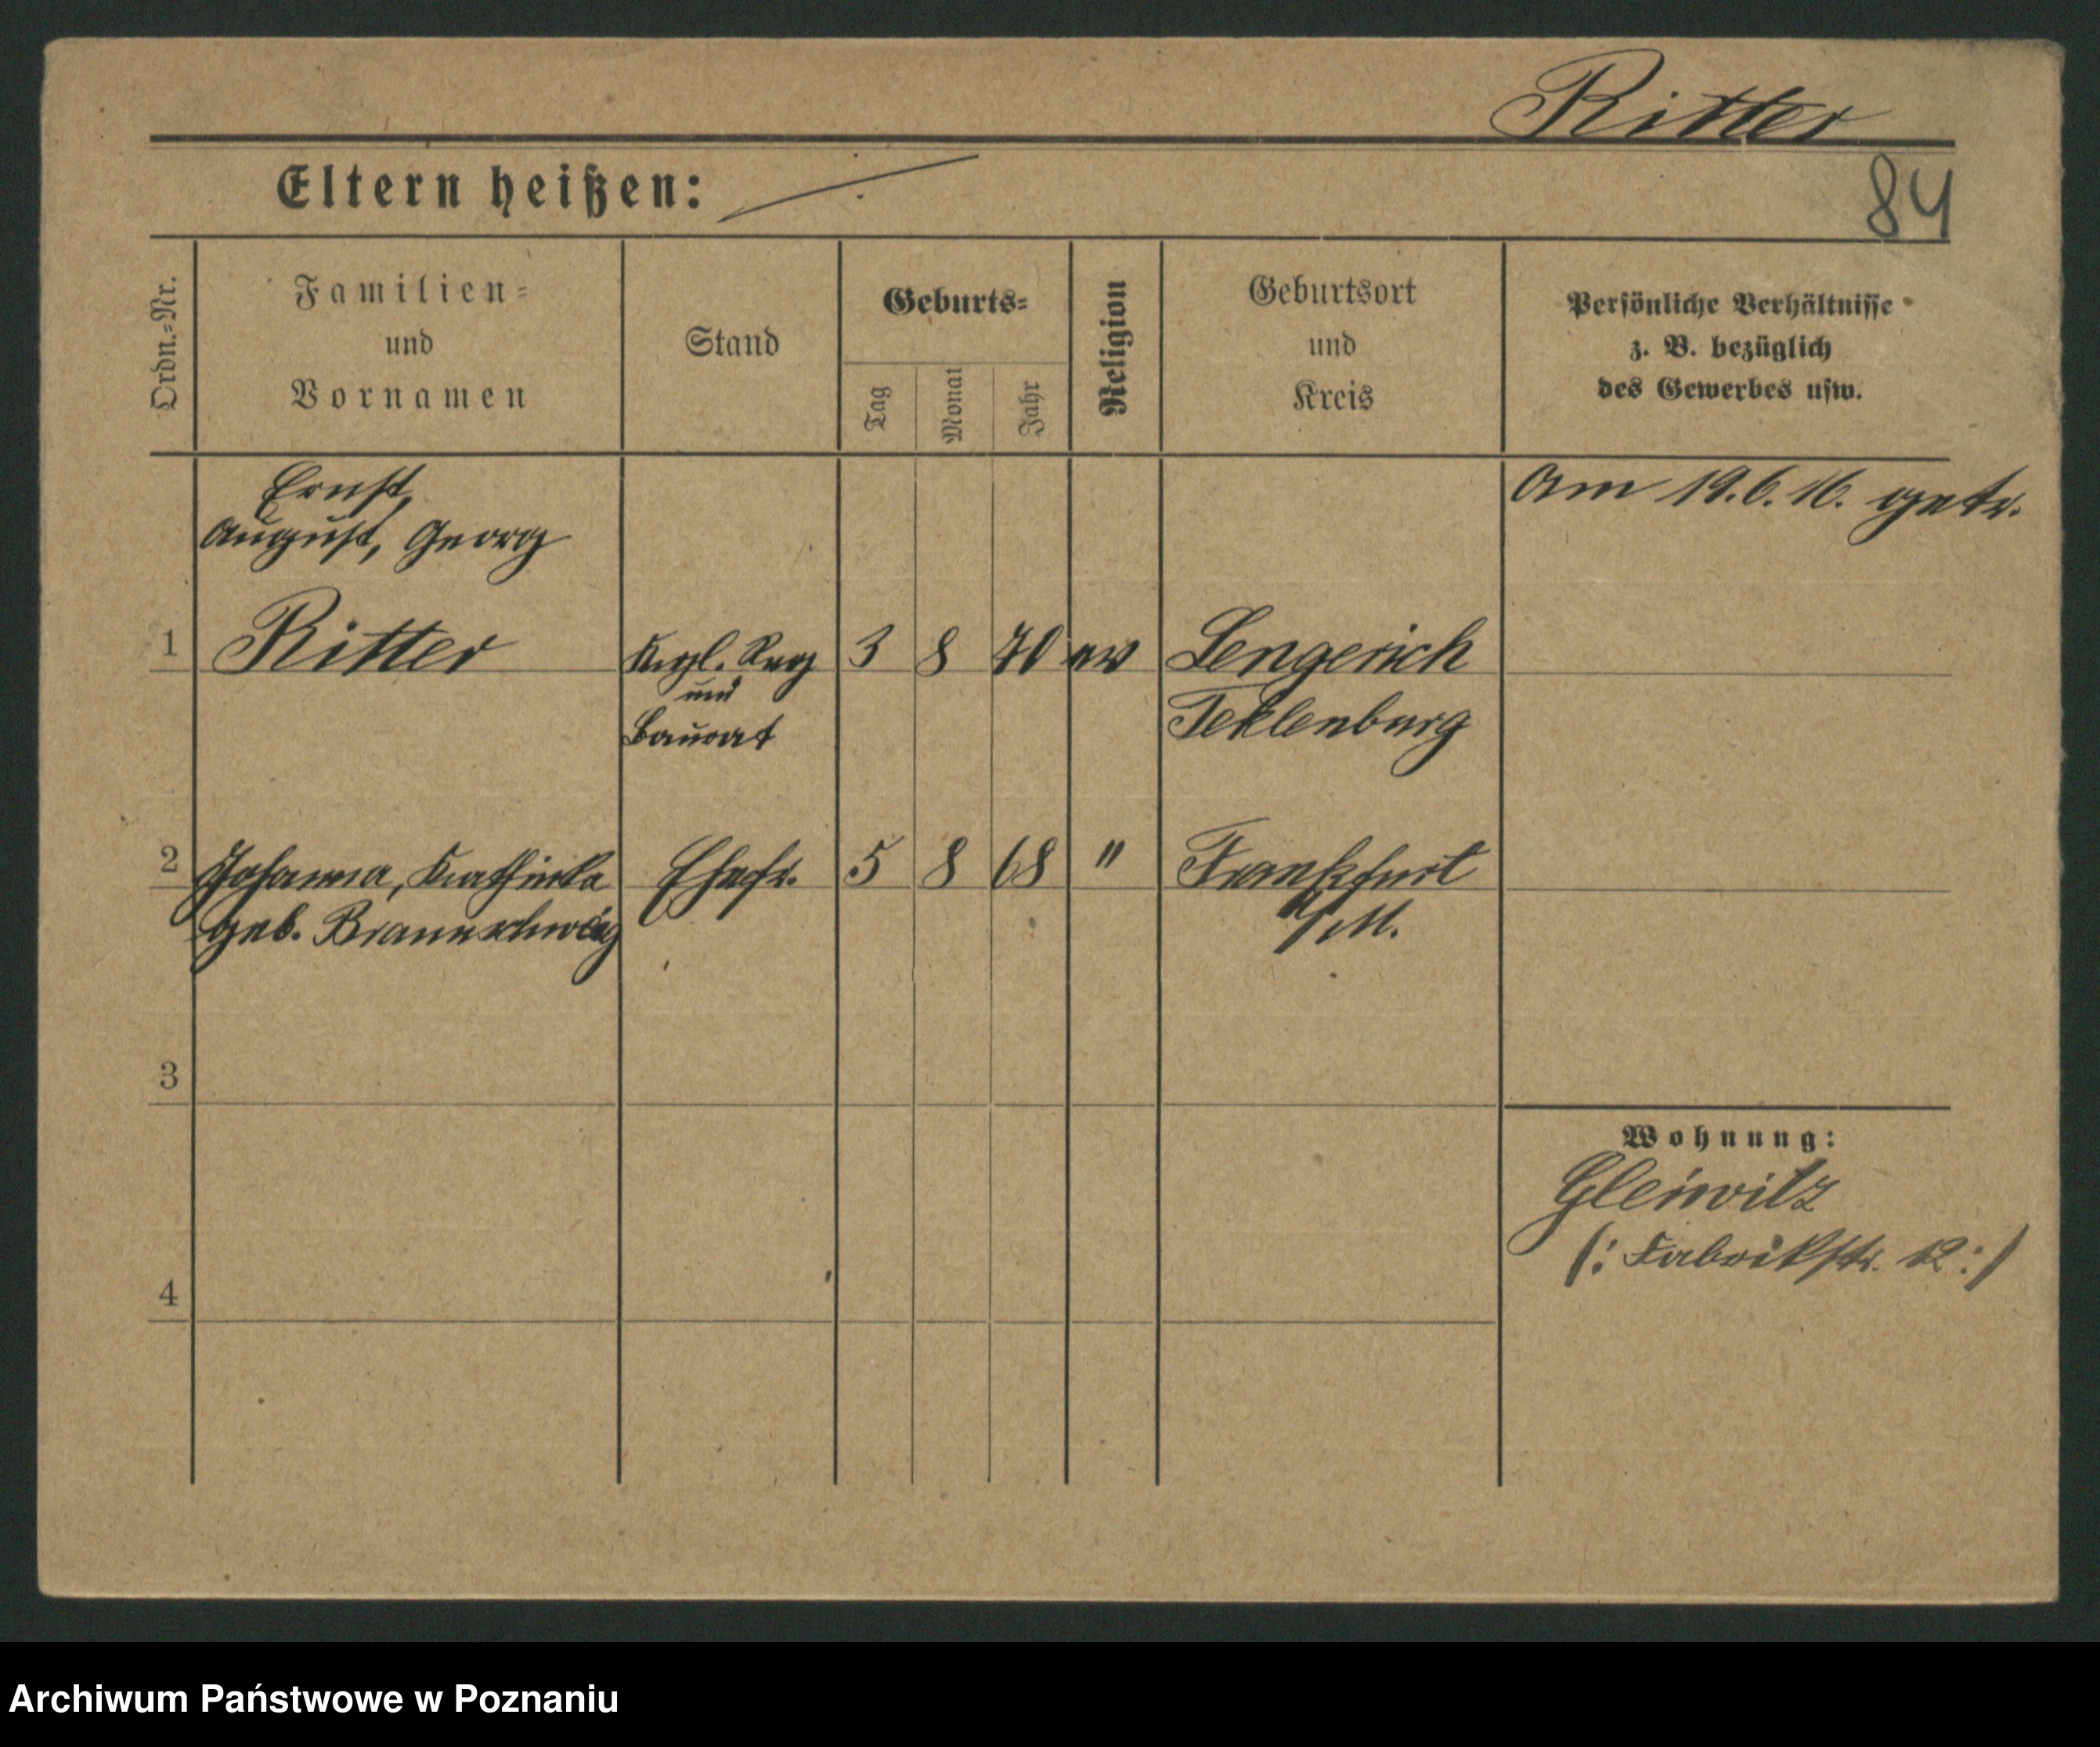 Ritter
Eltern heißen:
84
Ordn.-Nr.
Familien-
und
Vornamen
Stand
Geburts-
Tag
Monat
Jahr
Religion
Geburtsort
und
Kreis
Persönliche Verhältnisse
z. B. bezüglich
des Gewerbes usw.
Ernst,
August, Georg
am 19.6.16. getr.
1 Ritter Kgl. Reg 3 8 70 ev Lengerich
und
Baurat Teklenburg
2 Johanna, Kathinka Ehefr. 5 8 68 " Frankfurt
geb. Braunschweig a/M.
3
Wohnung:
Gleiwitz
(: Fabrikstr. 12 :)
4
Archiwum Państwowe w Poznaniu